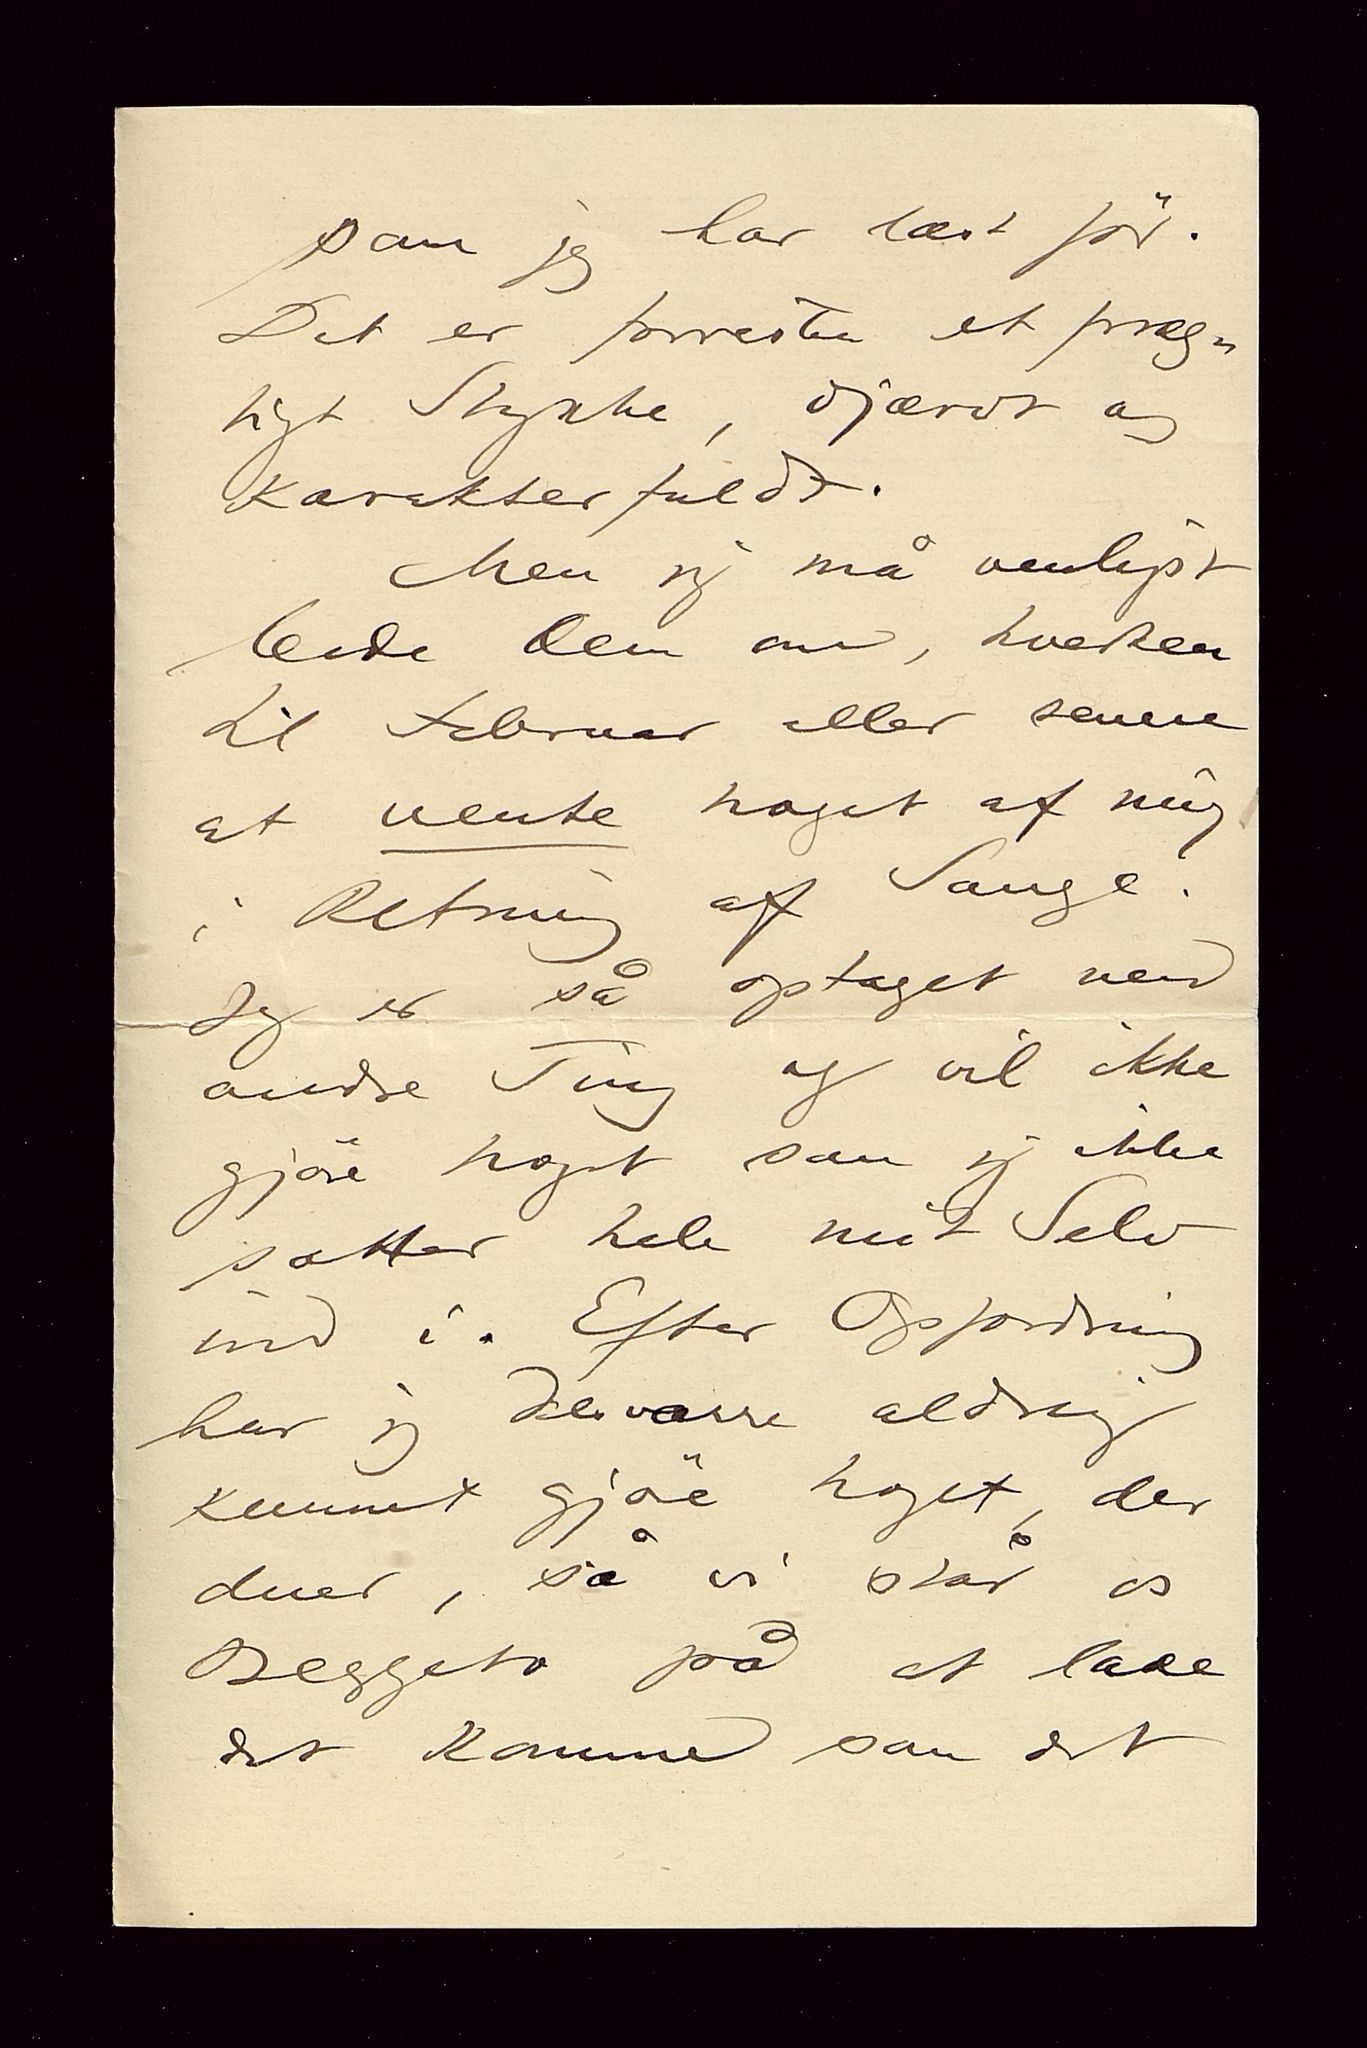 som jeg har læst för.
Det er forresten et præg-
tigt Stykke, djærvt og
karakterfuldt.
Men jeg må venligst
bede Dem om, hverken
til Februar eller senere
at vente noget af mig
i Retning af Sange.
Jeg er så optaget med
andre Ting og vil ikke
gjöre noget som jeg ikke
sætter hele mit Selv
ind i. Efter Opfordring
har jeg desværre aldrig
kunnet gjöre noget, der
duer, så vi står os
Beggeto på at lade
det komme som det